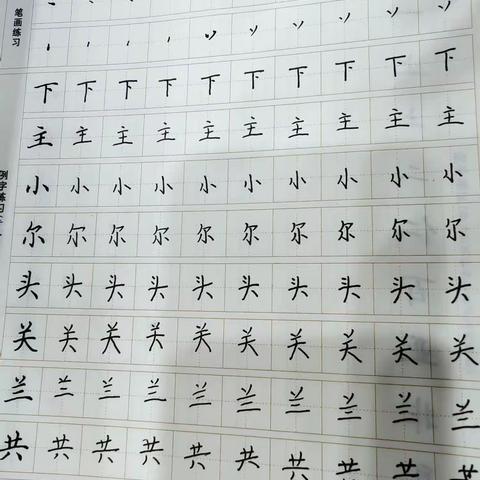 笔画练习
下下下下下下下下下下
主主主主主主主主主主
例字练习
小小小小小小小小小小
尔尔尔尔尔尔尔尔尔尔
头头头头头头头头头头
关关关关关关关关关关
兰兰兰兰兰兰兰兰兰兰
共共共共共共共共共共